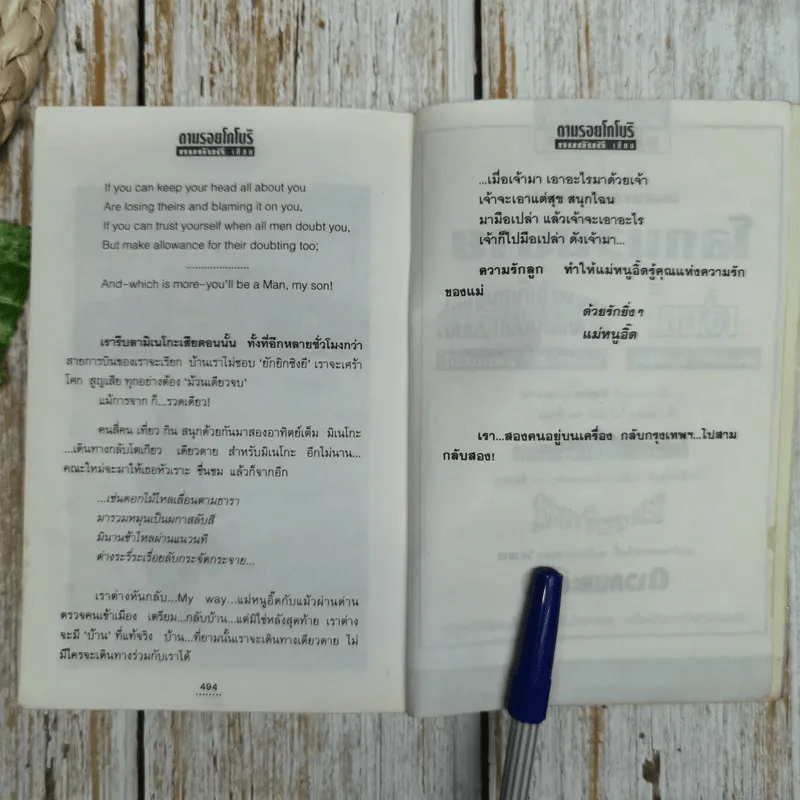 ตามรอยโกโบริ
ทมยันตี เขียน
If you can keep your head all about you
Are losing theirs and blaming it on you,
If you can trust yourself when all men doubt you,
But make allowance for their doubting too;
......................
And–which is more–you'll be a Man, my son!
เรารีบลามิเนโกะเสียตอนนั้น ทั้งที่อีกหลายชั่วโมงกว่า
สายการบินของเราจะเรียก บ้านเราไม่ชอบ ‘ยักยิกซิงยี’ เราจะเศร้า
โศก สูญเสีย ทุกอย่างต้อง ‘ม้วนเดียวจบ’
แม้การจาก ก็...รวดเดียว!
คนสี่คน เที่ยว กิน สนุกด้วยกันมาสองอาทิตย์เต็ม มิเนโกะ
...เดินทางกลับโตเกียว เดียวดาย สำหรับมิเนโกะ อีกไม่นาน...
คณะใหม่จะมาให้เธอหัวเราะ ชื่นชม แล้วก็จากอีก
...เช่นดอกไม้ไหลเลื่อนตามธารา
มารวมหมุนเป็นผกาสลับสี
มินานช้าไหลผ่านแนวนที
ต่างระรี่ระเรื่อยลับกระจัดกระจาย...
เราต่างหันกลับ...My way...แม่หนูอี๊ดกับแม้วผ่านด่าน
ตรวจคนเข้าเมือง เตรียม...กลับบ้าน...แต่มิใช่หลังสุดท้าย เราต่าง
จะมี ‘บ้าน’ ที่แท้จริง บ้าน...ที่ยามนั้นเราจะเดินทางเดียวดาย ไม่
มีใครจะเดินทางร่วมกับเราได้
494
ตามรอยโกโบริ
ทมยันตี เขียน
...เมื่อเจ้ามา เอาอะไรมาด้วยเจ้า
เจ้าจะเอาแต่สุข สนุกไฉน
มามือเปล่า แล้วเจ้าจะเอาอะไร
เจ้าก็ไปมือเปล่า ดังเจ้ามา...
ความรักลูก ทำให้แม่หนูอี๊ดรู้คุณแห่งความรัก
ของแม่
ด้วยรักยิ่ง ๆ
แม่หนูอี๊ด
เรา...สองคนอยู่บนเครื่อง กลับกรุงเทพฯ...ไปสาม
กลับสอง!